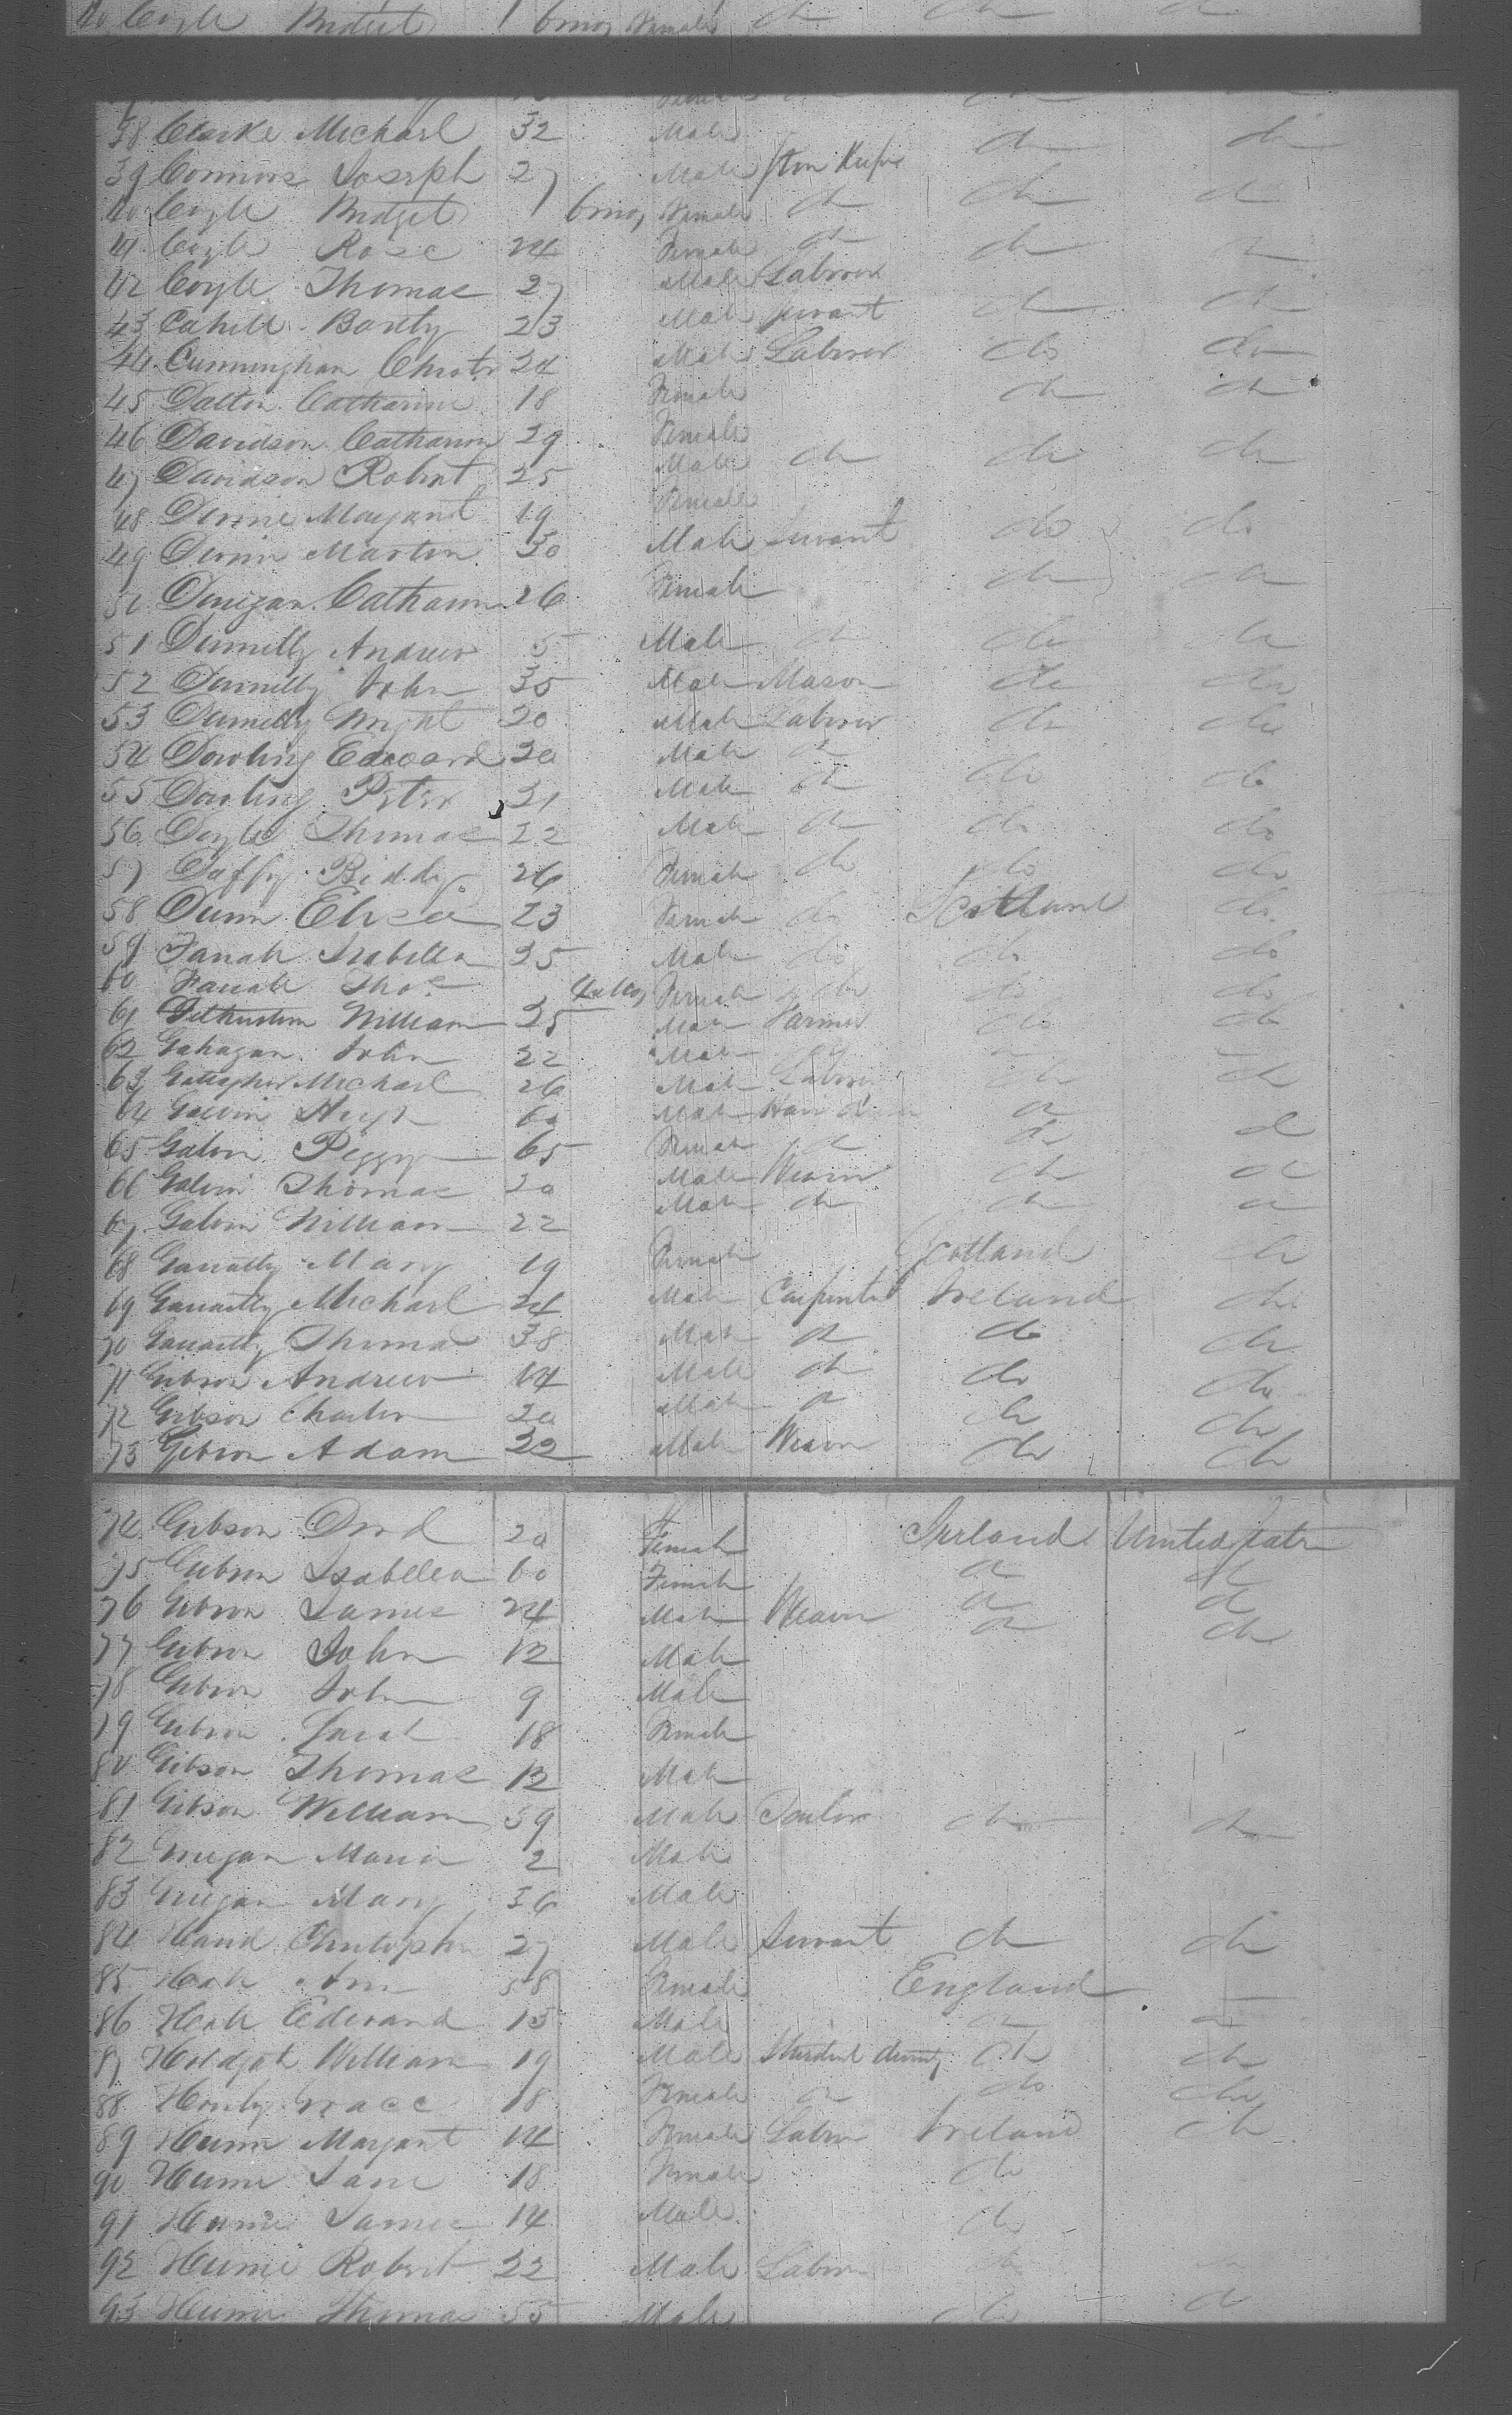 40 Coyle Bridget 6 mos Female do do do
38 Clarke Michael 32 Male do do
39 Connors Joseph 27 Male
40 Coyle Bridget 6 mos Female do do do
41 Coyle Rose 24 Female do do
42 Coyle Thomas 27 Male Labrour
43 Cahill Barty 23 Male Servant do do
44 Cunningham Christr 24 Male Labrour do do
45 Dalton Catharine 18 Female do do
46 Davidson Catharine 29 Female
47 Davidson Robert 25 Male do do do
48 Margaret 19 Female
49 Martin 30 Male Servant do do
Catharine 26 Female do do
51 Dunnelly Andrew 5 Male do do do
52 Dunnelly John 35 Male Mason do do
53 Dunnelly Wright 20 Male Labrour do do
54 Dowling Edward 30 Male do
55 Dowling Peter 31 Male do do do
56 Doyle Thomas 22 Male do do do
57 Duffy Biddy 26 Female do do do
58 Dunn Eliza 23 Female do Scotland do
59 Isabella 35 Male do do do
60 Thos. Female do do do
61 William 25 Male Farmer do do
62 Gahagan John 22 Male
63 Gallagher Michael 26 Male Labrour do do
64 Galvin Hugh 60 Male do
65 Galvin Peggy 65 Female do do do
66 Galvin Thomas 20 Male Weaver do do
67 Galvin William 22 Male do do do
68 Garratty Mary 19 Female Scotland do
69 Garratty Michael 24 Male Carpenter Ireland do
70 Garratty Thomas 38 Male do do do
71 Gibson Andrew 14 Male do do do
72 Gibson Charles 20 Male do do do
73 Gibson Adam 22 Male Weaver do do
74 Gibson 20 Female Ireland United States
75 Gibson Isabella 60 Female do do
76 Gibson James 24 Male Weaver do do
77 Gibson John 12 Male do do
78 Gibson John 9 Male
79 Gibson Sarah 18 Female
80 Gibson Thomas 12 Male
81 Gibson William 39 Male Taylor do do
82 Maria 2 Male
83 Mary 36 Male
84 Hand Christopher 27 Male Servant do do
85 Ann 58 Female England
86 Edward 15 Male do do
87 William 19 Male Student do do
88 Grace 18 Female do do do
89 Hume Margaret 14 Female Labrour Ireland do
90 Hume Jane 18 Female do
91 Hume James 14 Male do
92 Hume Robert 22 Male Labrour do
93 Hume Thomas 55 Male do do